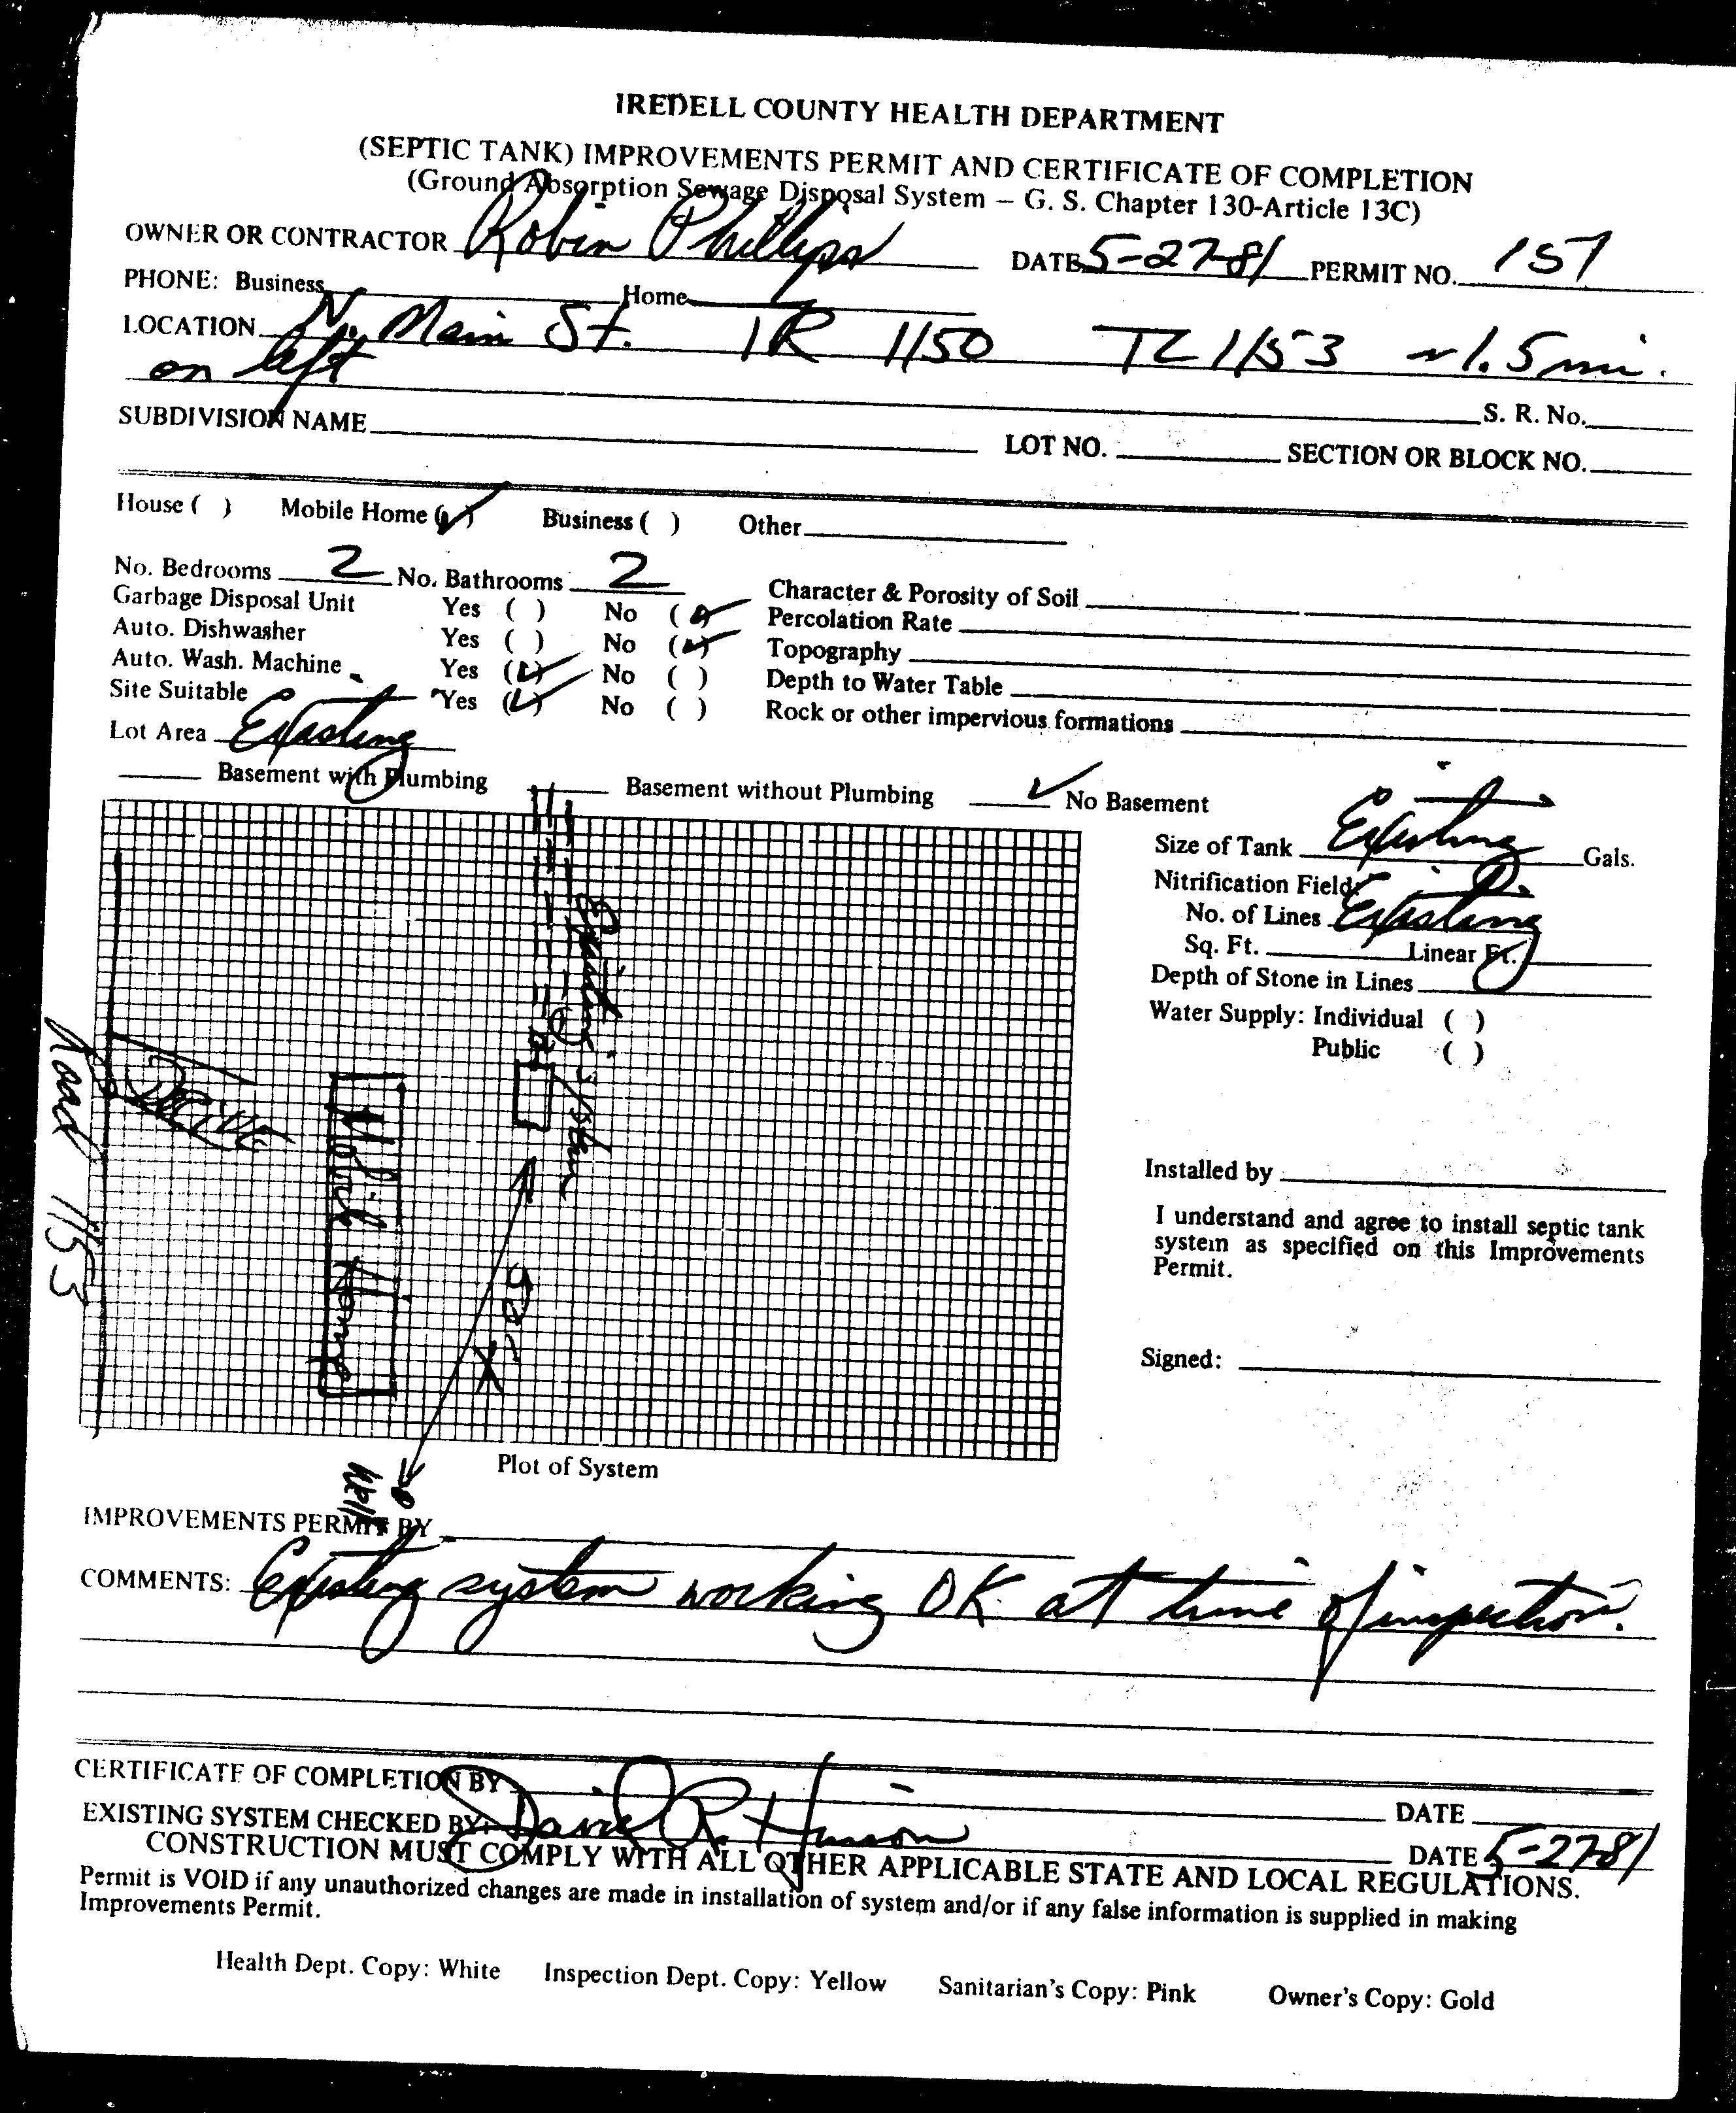 IREDELL COUNTY HEALTH DEPARTMENT
(SEPTIC TANK) IMPROVEMENTS PERMIT AND CERTIFICATE OF COMPLETION
(Ground Absorption Sewage Disposal System – G. S. Chapter 130-Article 13C)
OWNER OR CONTRACTOR Robin Phillips DATE 5-27-81 PERMIT NO. 157
PHONE: Business Home
LOCATION N. Main St. TR 1150 TL 1153 ~1.5 mi.
on left
S. R. No.
SUBDIVISION NAME LOT NO. SECTION OR BLOCK NO.
House ( ) Mobile Home (✓) Business ( ) Other
No. Bedrooms 2 No. Bathrooms 2 Character & Porosity of Soil
Garbage Disposal Unit Yes ( ) No (✓) Percolation Rate
Auto. Dishwasher Yes ( ) No (✓) Topography
Auto. Wash. Machine Yes (✓) No ( ) Depth to Water Table
Site Suitable Yes (✓) No ( ) Rock or other impervious formations
Lot Area Existing
Basement with Plumbing Basement without Plumbing ✓ No Basement
Size of Tank Existing Gals.
Nitrification Field:
No. of Lines Existing
Sq. Ft. Linear Ft.
Depth of Stone in Lines
Water Supply: Individual ( )
Public ( )
Installed by
I understand and agree to install septic tank
system as specified on this Improvements
Permit.
Signed:
Road 1153
Drive
Mobile Home
Existing System
50'
X
Well
Plot of System
IMPROVEMENTS PERMIT BY
COMMENTS: Existing system working OK at time of inspection.
CERTIFICATE OF COMPLETION BY DATE
EXISTING SYSTEM CHECKED BY: David R. DATE 5-27-81
CONSTRUCTION MUST COMPLY WITH ALL OTHER APPLICABLE STATE AND LOCAL REGULATIONS.
Permit is VOID if any unauthorized changes are made in installation of system and/or if any false information is supplied in making
Improvements Permit.
Health Dept. Copy: White Inspection Dept. Copy: Yellow Sanitarian's Copy: Pink Owner's Copy: Gold